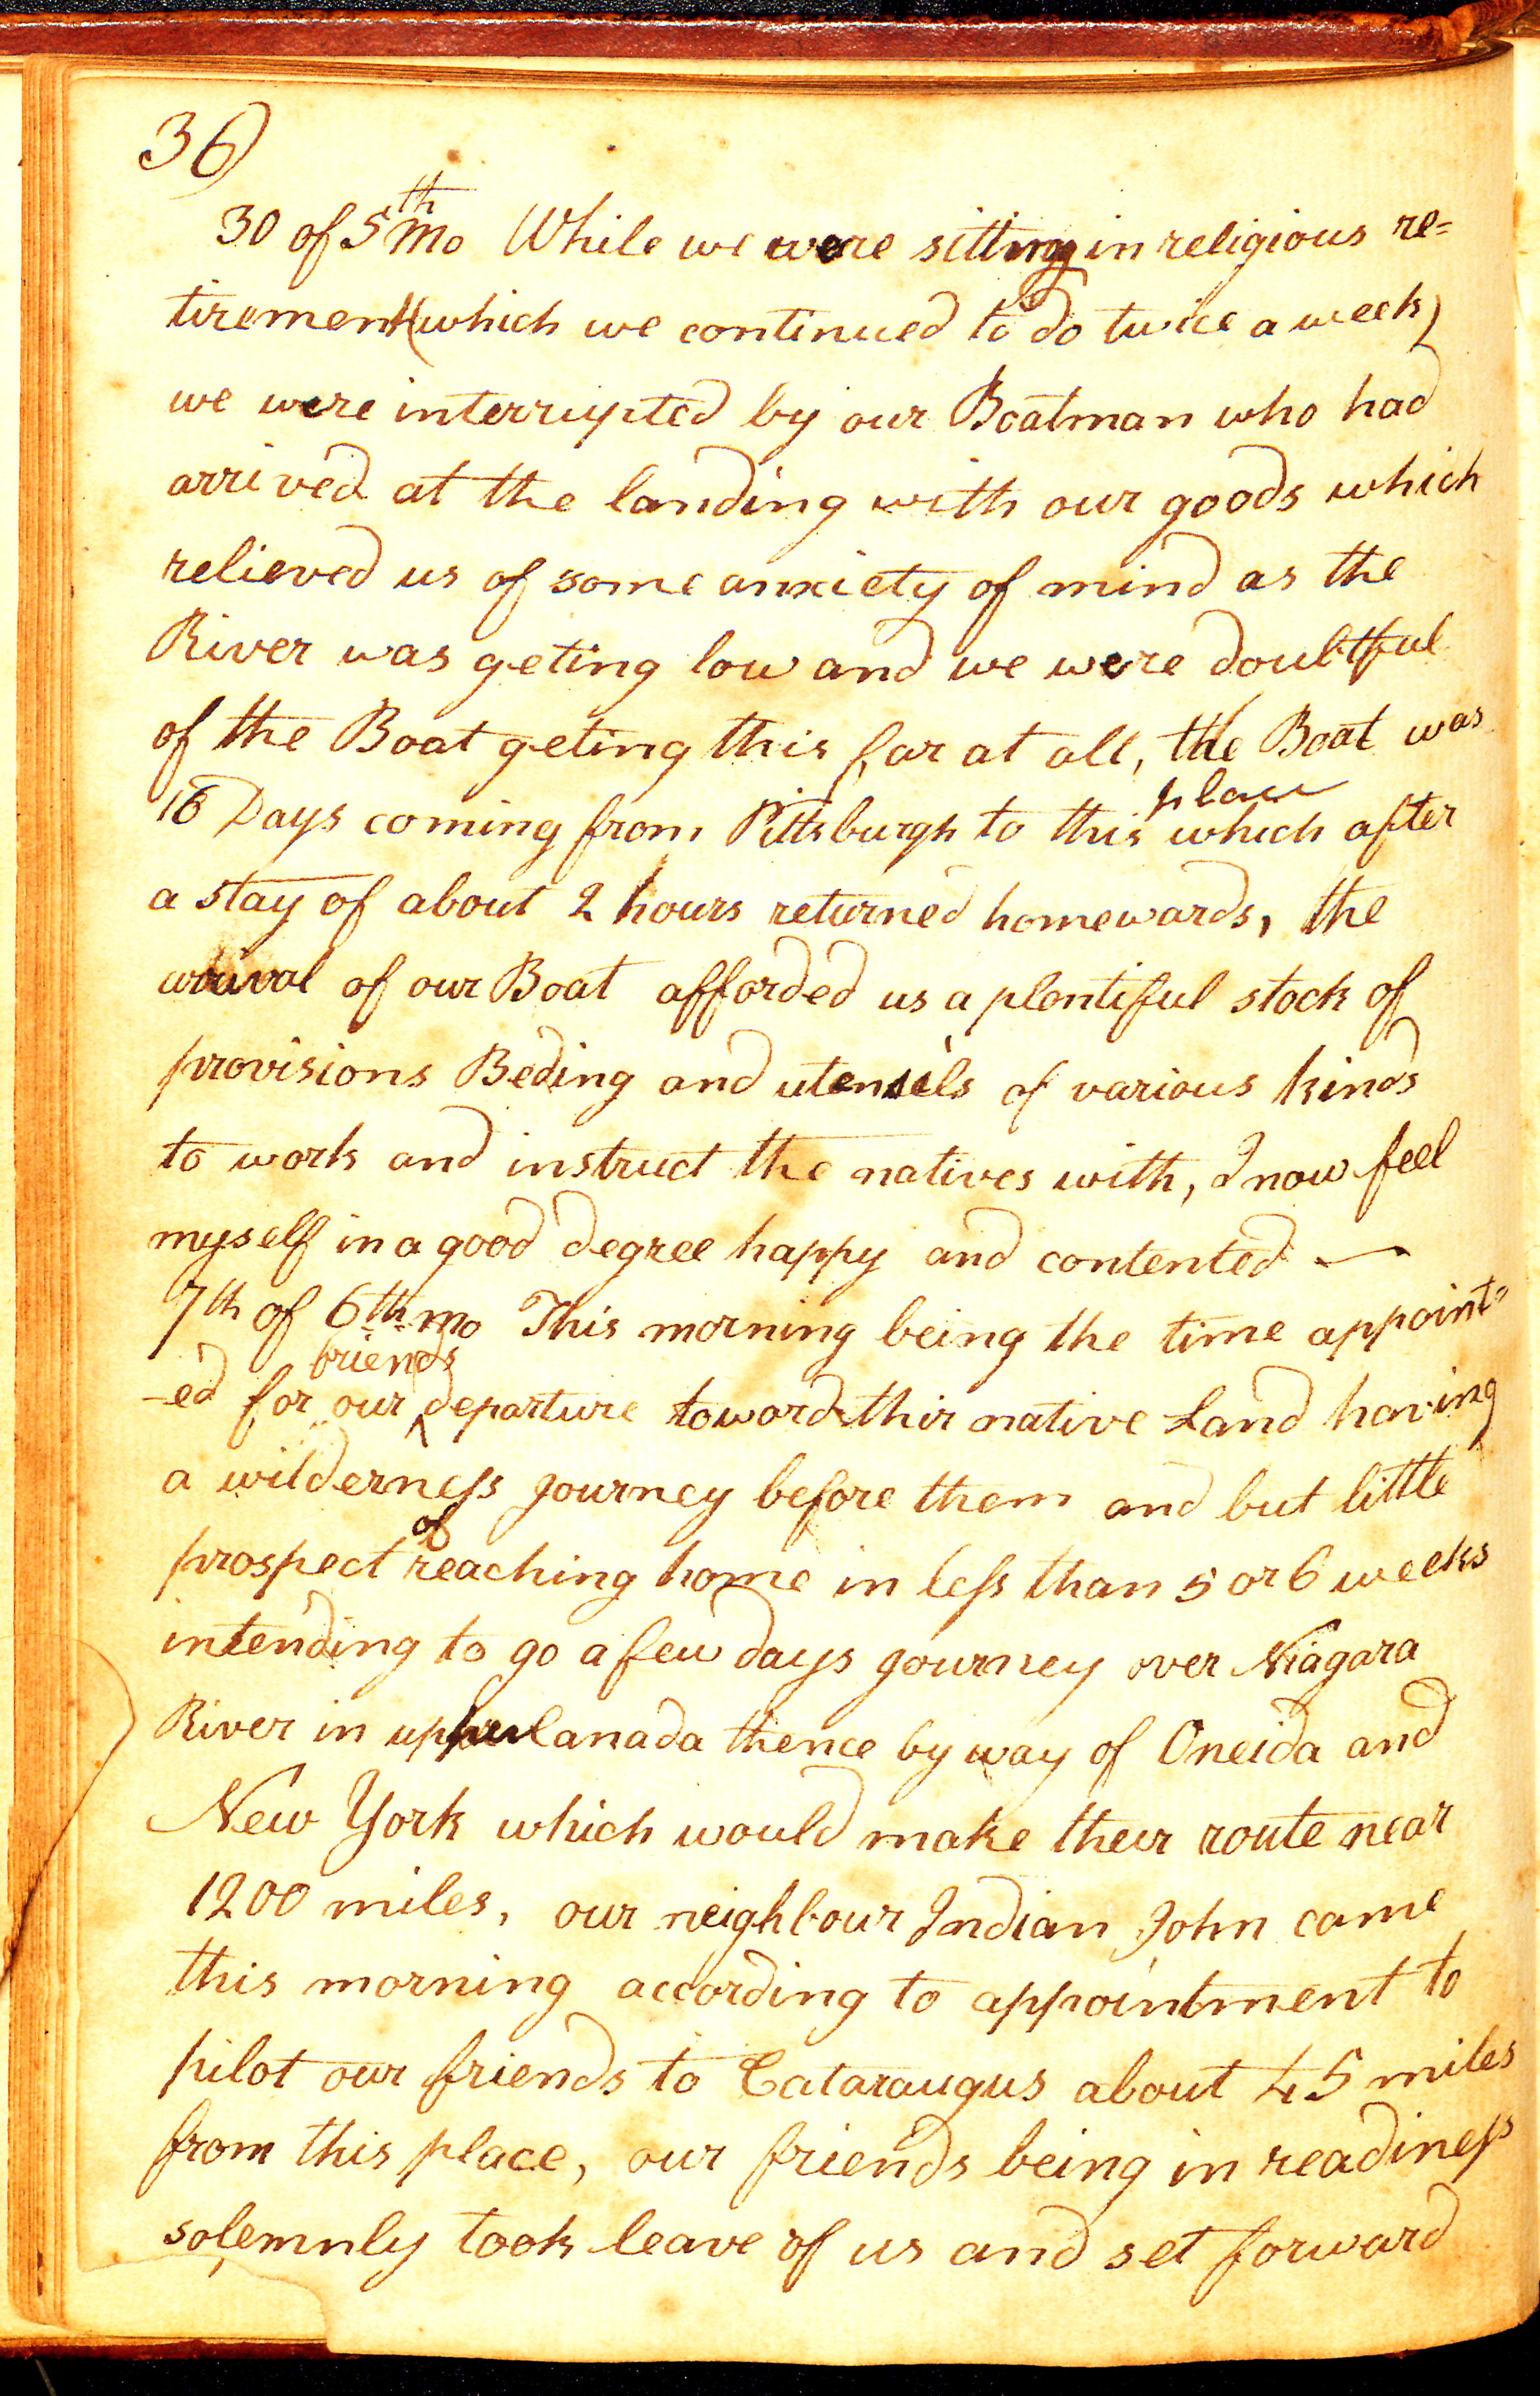 36)
30 of 5th mo While we were sitting in religious re=
tirement (which we continued to do twice a week)
we were interrupted by our Boatman who had
arrived at the landing with our goods which
relieved us of some anxiety of mind as the
River was geting low and we were doubtful
of the Boat geting this far at all, the Boat was
16 Days coming from Pittsburgh to this place which after
a stay of about 2 hours returned homewards, the
arrival of our Boat afforded us a plentiful stock of
provisions Beding and utensils of various kinds
to work and instruct the natives with, I now feel
myself in a good degree happy and contented —
7th of 6th mo This morning being the time appoint=
-ed for our friends departure towards thir native Land having
a wilderness journey before them and but little
prospect of reaching home in less than 5 or 6 weeks
intending to go a few days journey over Niagara
River in upper Canada thence by way of Oneida and
New York which would make their route near
1200 miles, our neighbour Indian John came
this morning according to appointment to
pilot our friends to Cataraugus about 45 miles
from this place, our friends being in readiness
solemnly took leave of us and set forward